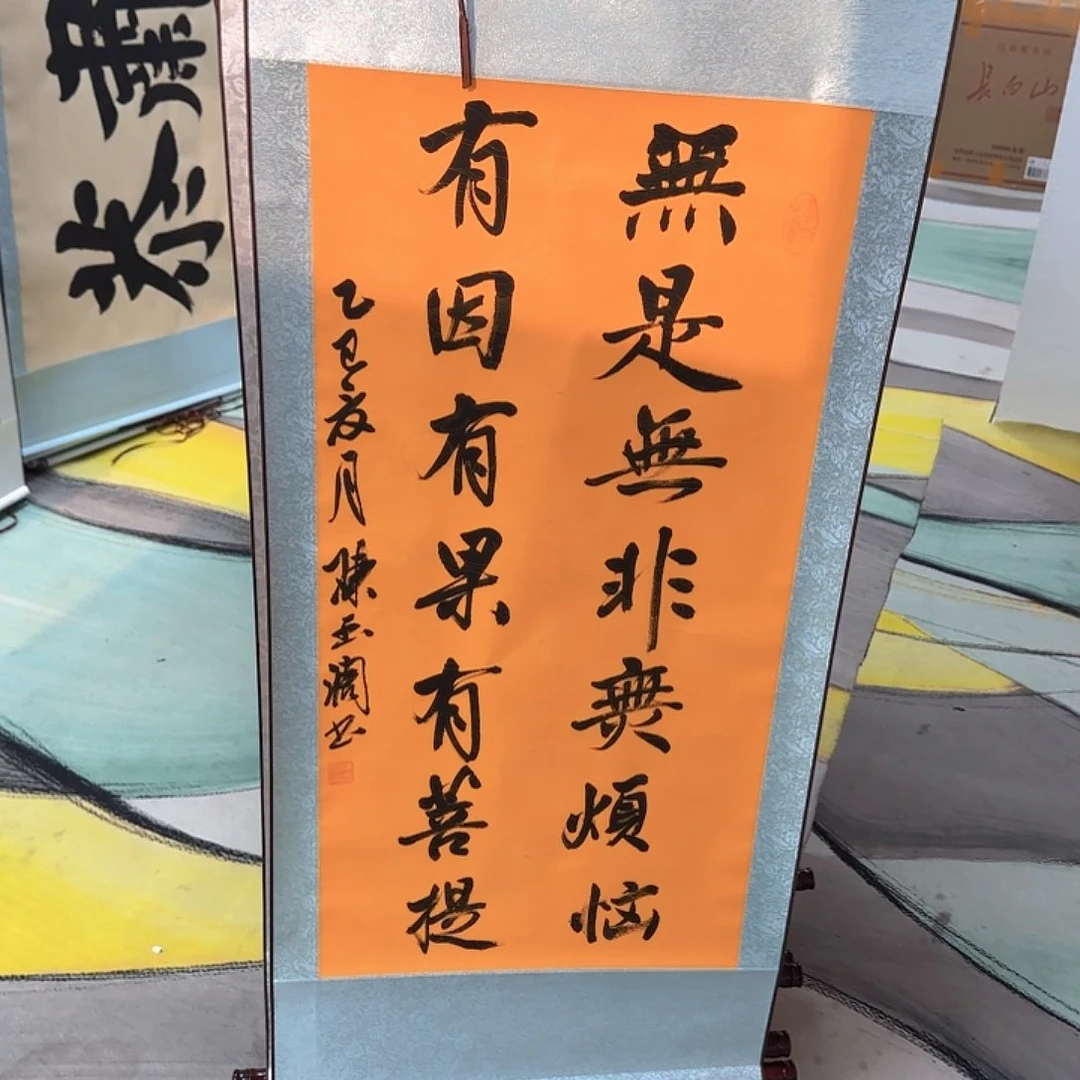 無是無非無煩惱
有因有果有菩提
乙巳亥月 陳玉潤书
長白山